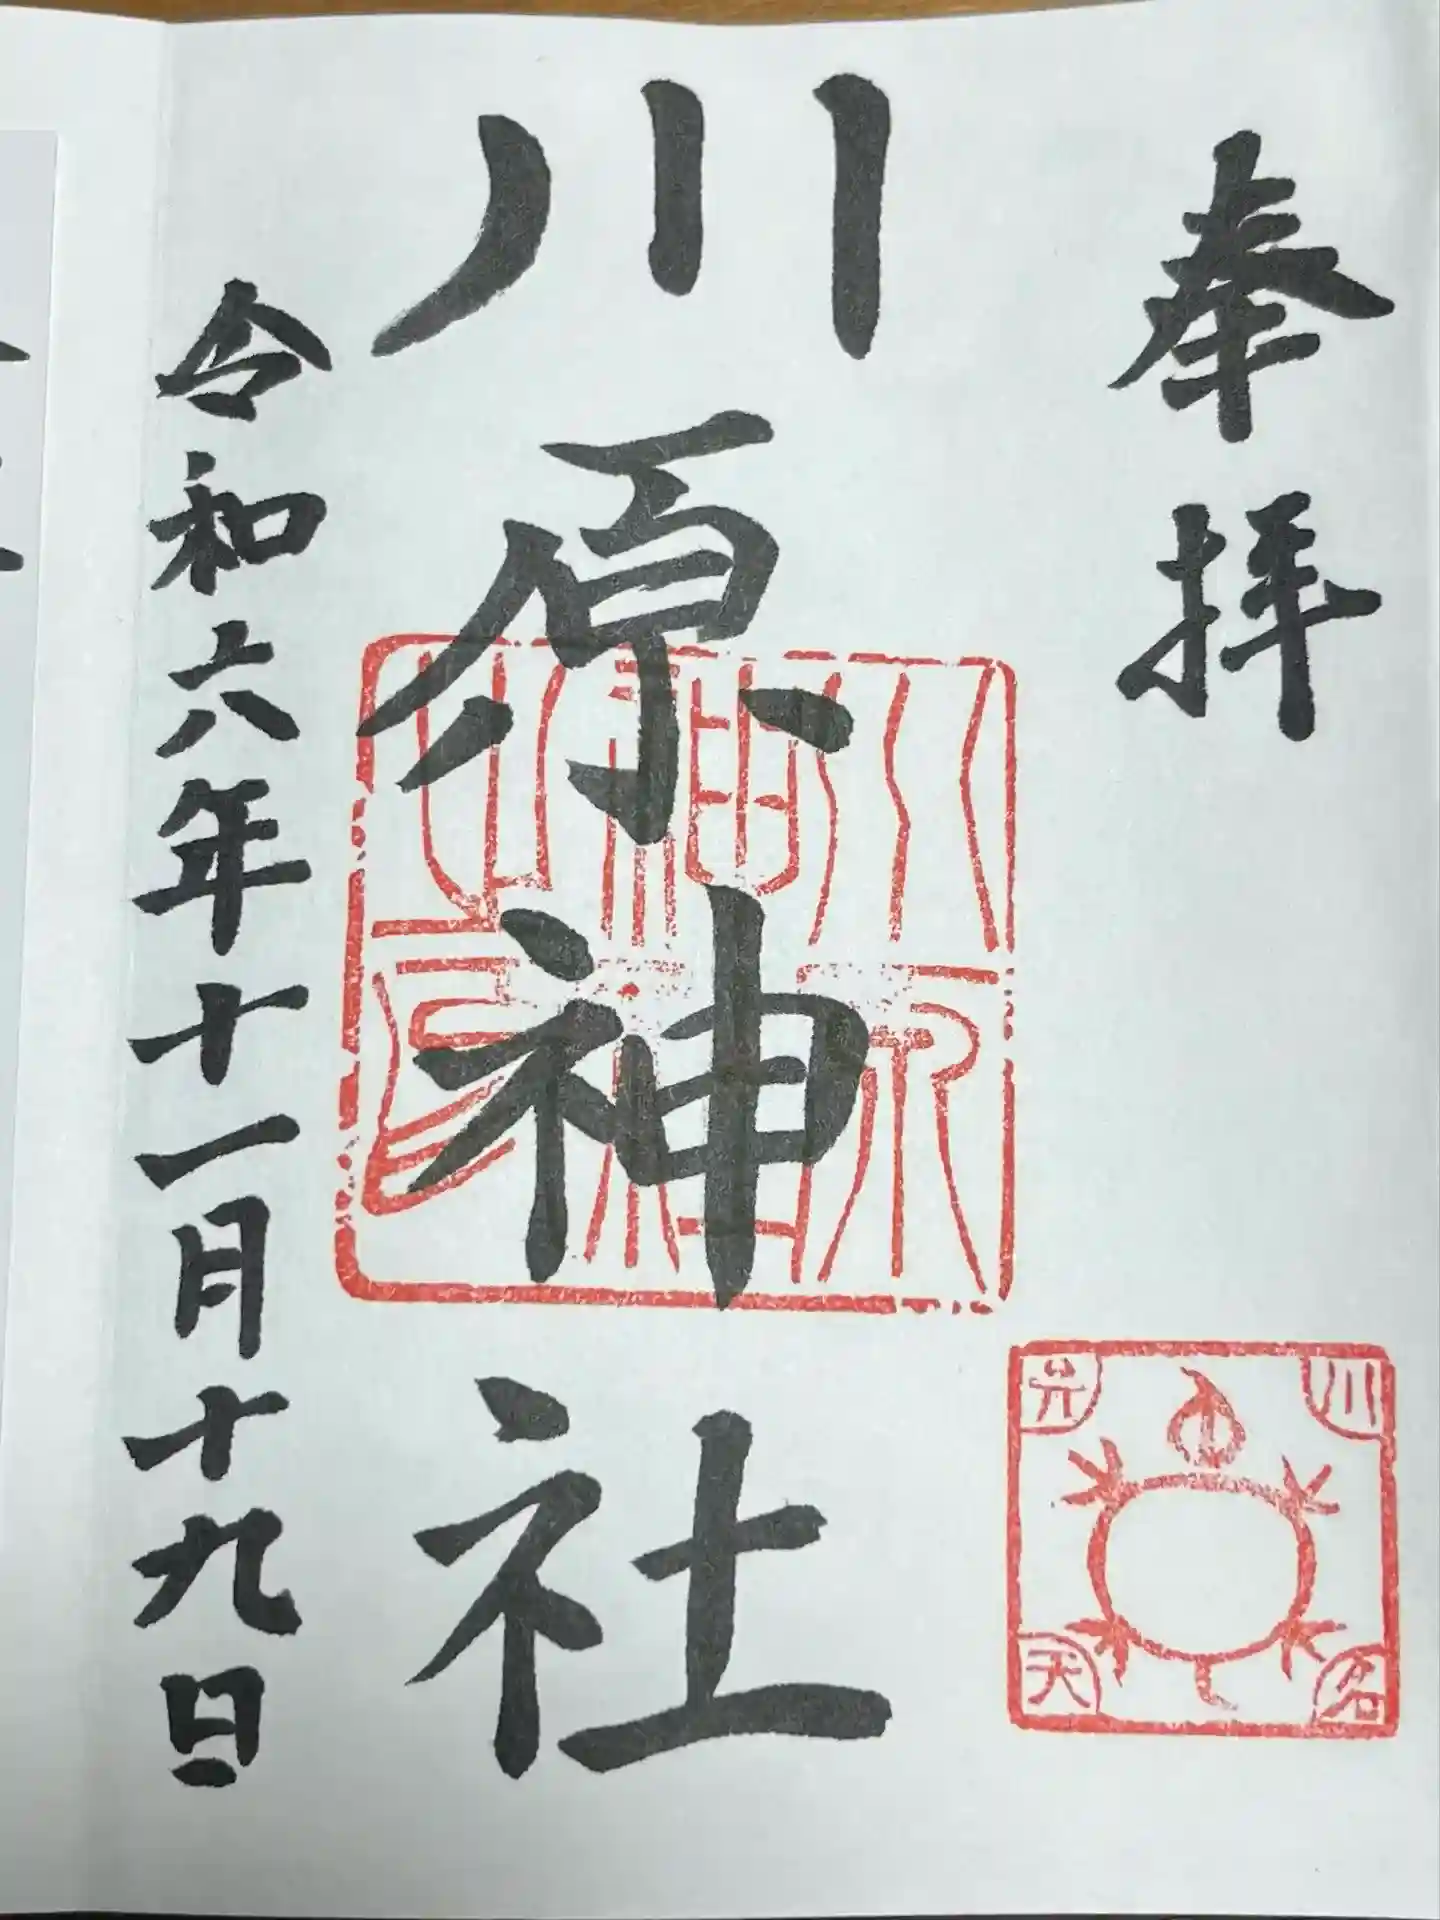 奉拝
川原神社
令和六年十一月十九日
川名
弁天